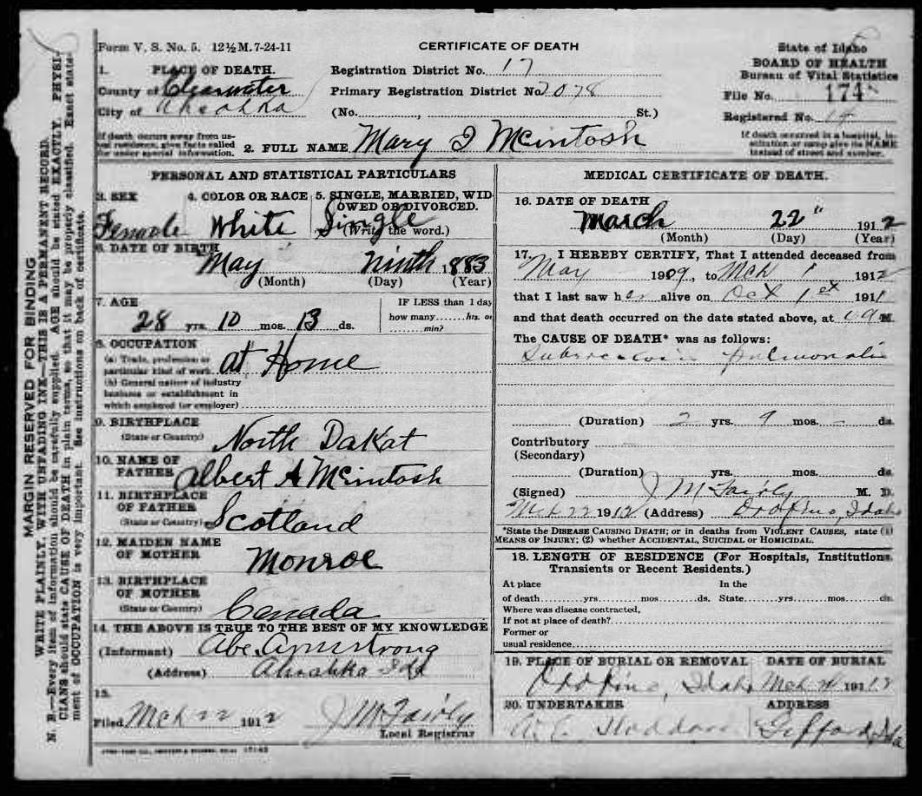 Form V. S. No. 5. 12½ M. 7-24-11
CERTIFICATE OF DEATH
State of Idaho
BOARD OF HEALTH
Bureau of Vital Statistics
File No. 174
Registered No.
If death occurred in a hospital, institution or camp give its NAME instead of street and number.
1. PLACE OF DEATH.
County of Clearwater
City of Ahsahka
Registration District No. 17
Primary Registration District No. 2078
(No. , St.)
If death occurs away from usual residence, give facts called for under special information.
2. FULL NAME Mary I McIntosh
PERSONAL AND STATISTICAL PARTICULARS
3. SEX
Female
4. COLOR OR RACE
White
5. SINGLE, MARRIED, WIDOWED OR DIVORCED.
Single
(Write the word.)
6. DATE OF BIRTH
May ninth 1883
(Month) (Day) (Year)
7. AGE
28 yrs. 10 mos. 13 ds.
IF LESS than 1 day
how many hrs. or
min?
8. OCCUPATION
(a) Trade, profession or
particular kind of work at Home
(b) General nature of industry
business or establishment in
which employed (or employer)
9. BIRTHPLACE
(State or Country) North Dakat
10. NAME OF
FATHER Albert A McIntosh
11. BIRTHPLACE
OF FATHER
(State or Country) Scotland
12. MAIDEN NAME
OF MOTHER Monroe
13. BIRTHPLACE
OF MOTHER
(State or Country) Canada
14. THE ABOVE IS TRUE TO THE BEST OF MY KNOWLEDGE
(Informant) Abe Armstrong
(Address) Ahsahka Ida
15.
Filed Mch 22 1912 J M Fairly
Local Registrar
MEDICAL CERTIFICATE OF DEATH.
16. DATE OF DEATH
March 22" 1912
(Month) (Day) (Year)
17. I HEREBY CERTIFY, That I attended deceased from
May 1909, to Mch 1 1912
that I last saw her alive on Oct 1st 1911
and that death occurred on the date stated above, at M.
The CAUSE OF DEATH* was as follows:
Pulmonalis
(Duration) 2 yrs. 9 mos. - ds.
Contributory
(Secondary)
(Duration) yrs. mos. ds.
(Signed) J M Fairly M. D.
Mch 22 1912 (Address) Orofino, Idaho
*State the DISEASE CAUSING DEATH; or in deaths from VIOLENT CAUSES, state (1)
MEANS OF INJURY; (2) whether ACCIDENTAL, SUICIDAL or HOMICIDAL
18. LENGTH OF RESIDENCE (For Hospitals, Institutions
Transients or Recent Residents.)
At place In the
of death yrs. mos. ds. State yrs. mos. ds.
Where was disease contracted,
If not at place of death?
Former or
usual residence
19. PLACE OF BURIAL OR REMOVAL DATE OF BURIAL
Orofino, Idaho Mch 1912
20. UNDERTAKER ADDRESS
Gifford, Ida
MARGIN RESERVED FOR BINDING
WRITE PLAINLY, WITH UNFADING INK—THIS IS A PERMANENT RECORD.
N. B.—Every item of information should be carefully supplied. AGE should be stated EXACTLY. PHYSICIANS should state CAUSE OF DEATH in plain terms, so that it may be properly classified. Exact statement of OCCUPATION is very important. See instructions on back of certificate.